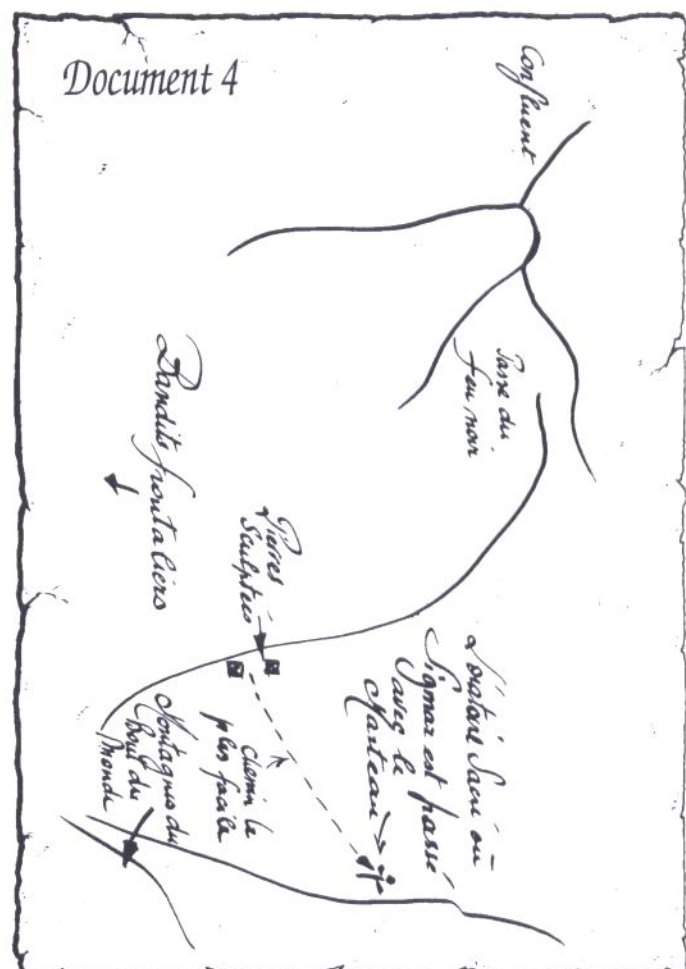 Document 4
Confluent
Passe du
feu noir
Bandits frontaliers
Pierres
Sculptées
L'oratoire Sacré où
Sigmar est passé
avec le
Marteau
chemin le
plus facile
Montagnes du
Bout du
Monde